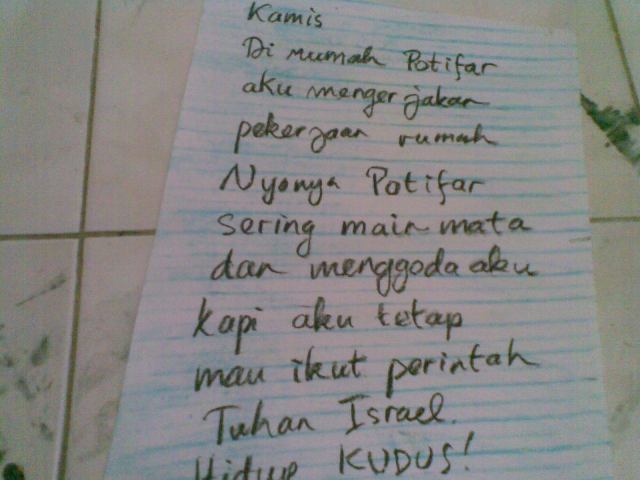 Kamis
Di rumah Potifar
aku mengerjakan
pekerjaan rumah
Nyonya Potifar
sering main mata
dan menggoda aku
kapi aku tetap
mau ikut perintah
Tuhan Israel.
Hidup KUDUS!